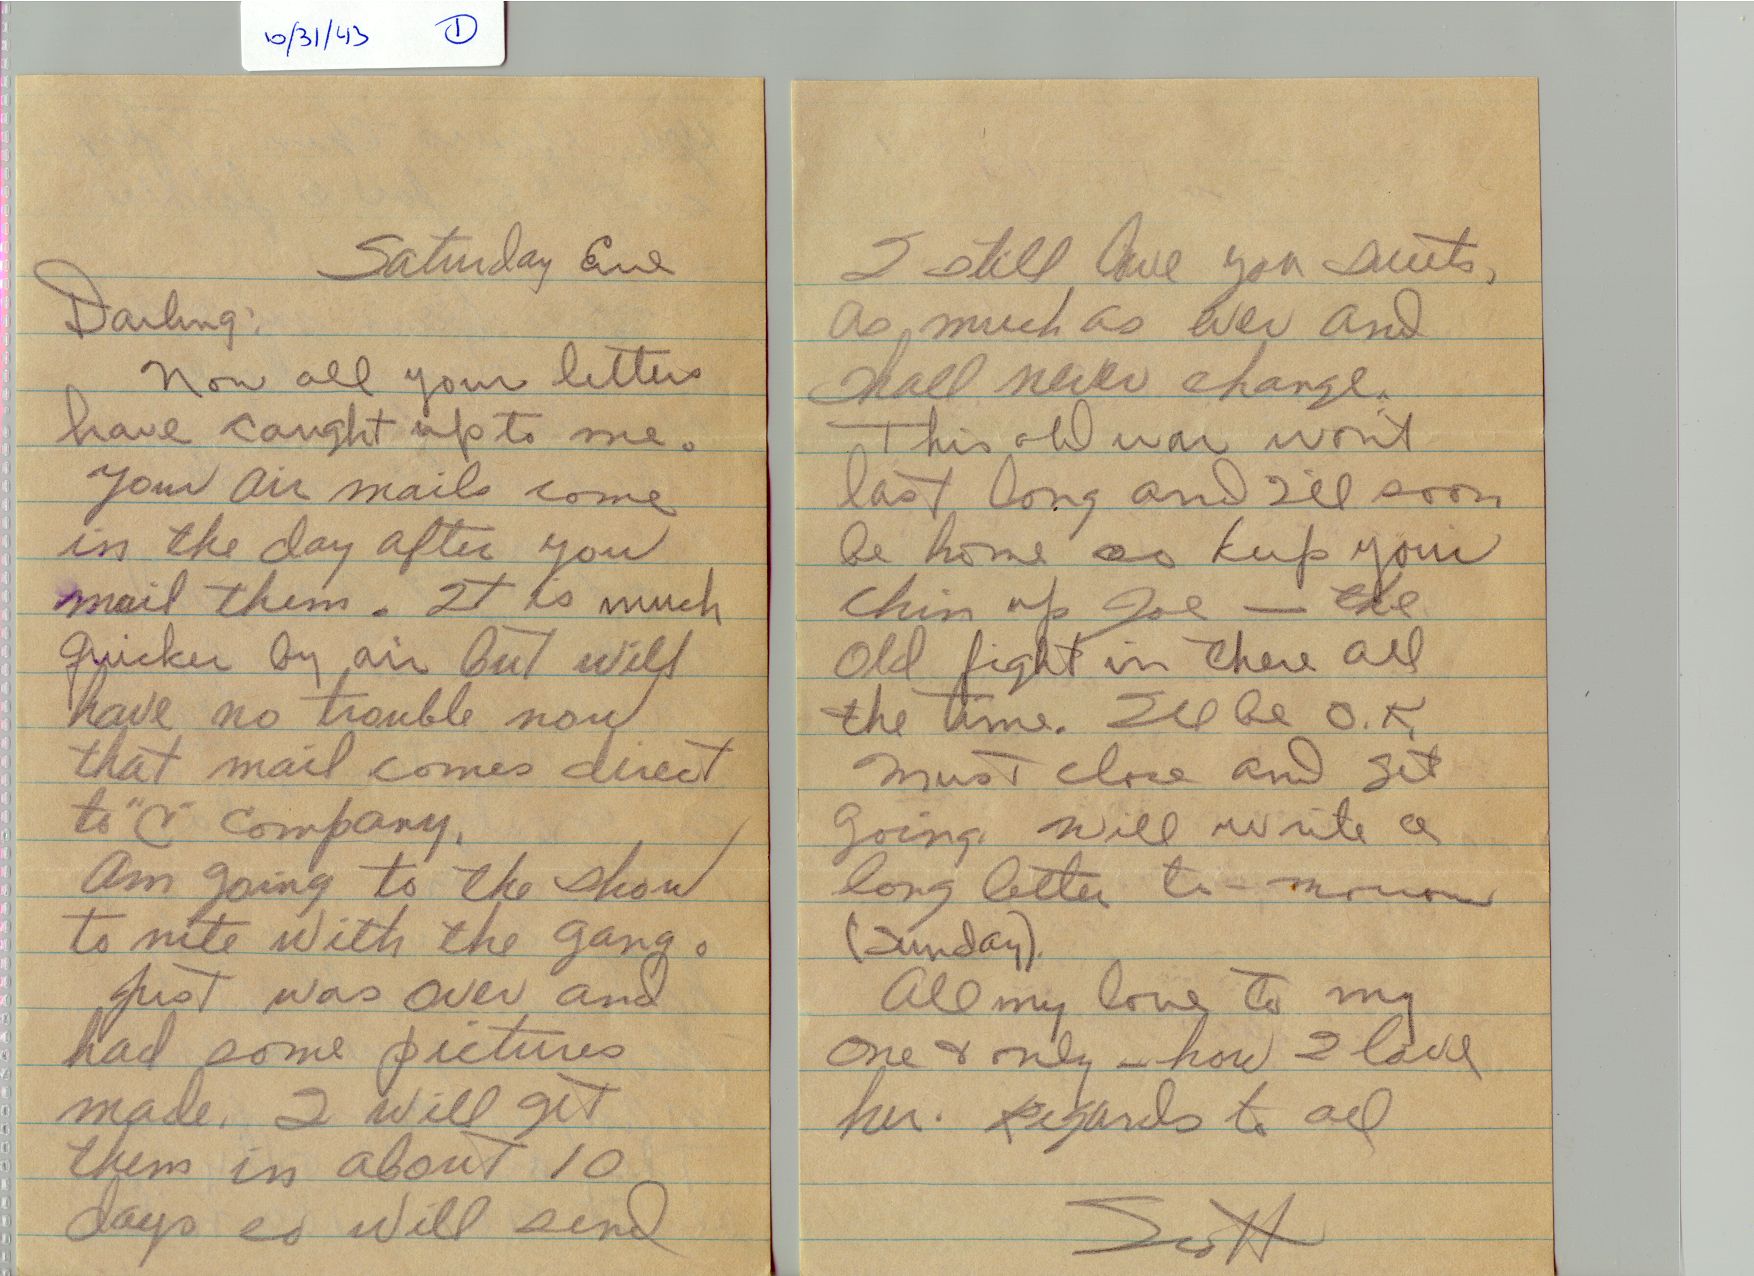 10/31/43 1
Saturday Eve
Darling:
Now all your letters
have caught up to me.
Your air mails come
in the day after you
mail them. It is much
quicker by air but will
have no trouble now
that mail comes direct
to "C" Company.
Am going to the show
to nite with the gang.
Just was over and
had some pictures
made. I will get
them in about 10
days so will send
I still love you sweets,
as much as ever and
shall never change.
This old war won't
last long and I'll soon
be home so keep your
chin up Joe — the
old fight in there all
the time. I'll be O.K.
Must close and get
going. Will write a
long letter to-morrow
(Sunday).
All my love to my
one & only — how I love
her. Regards to all
Scott